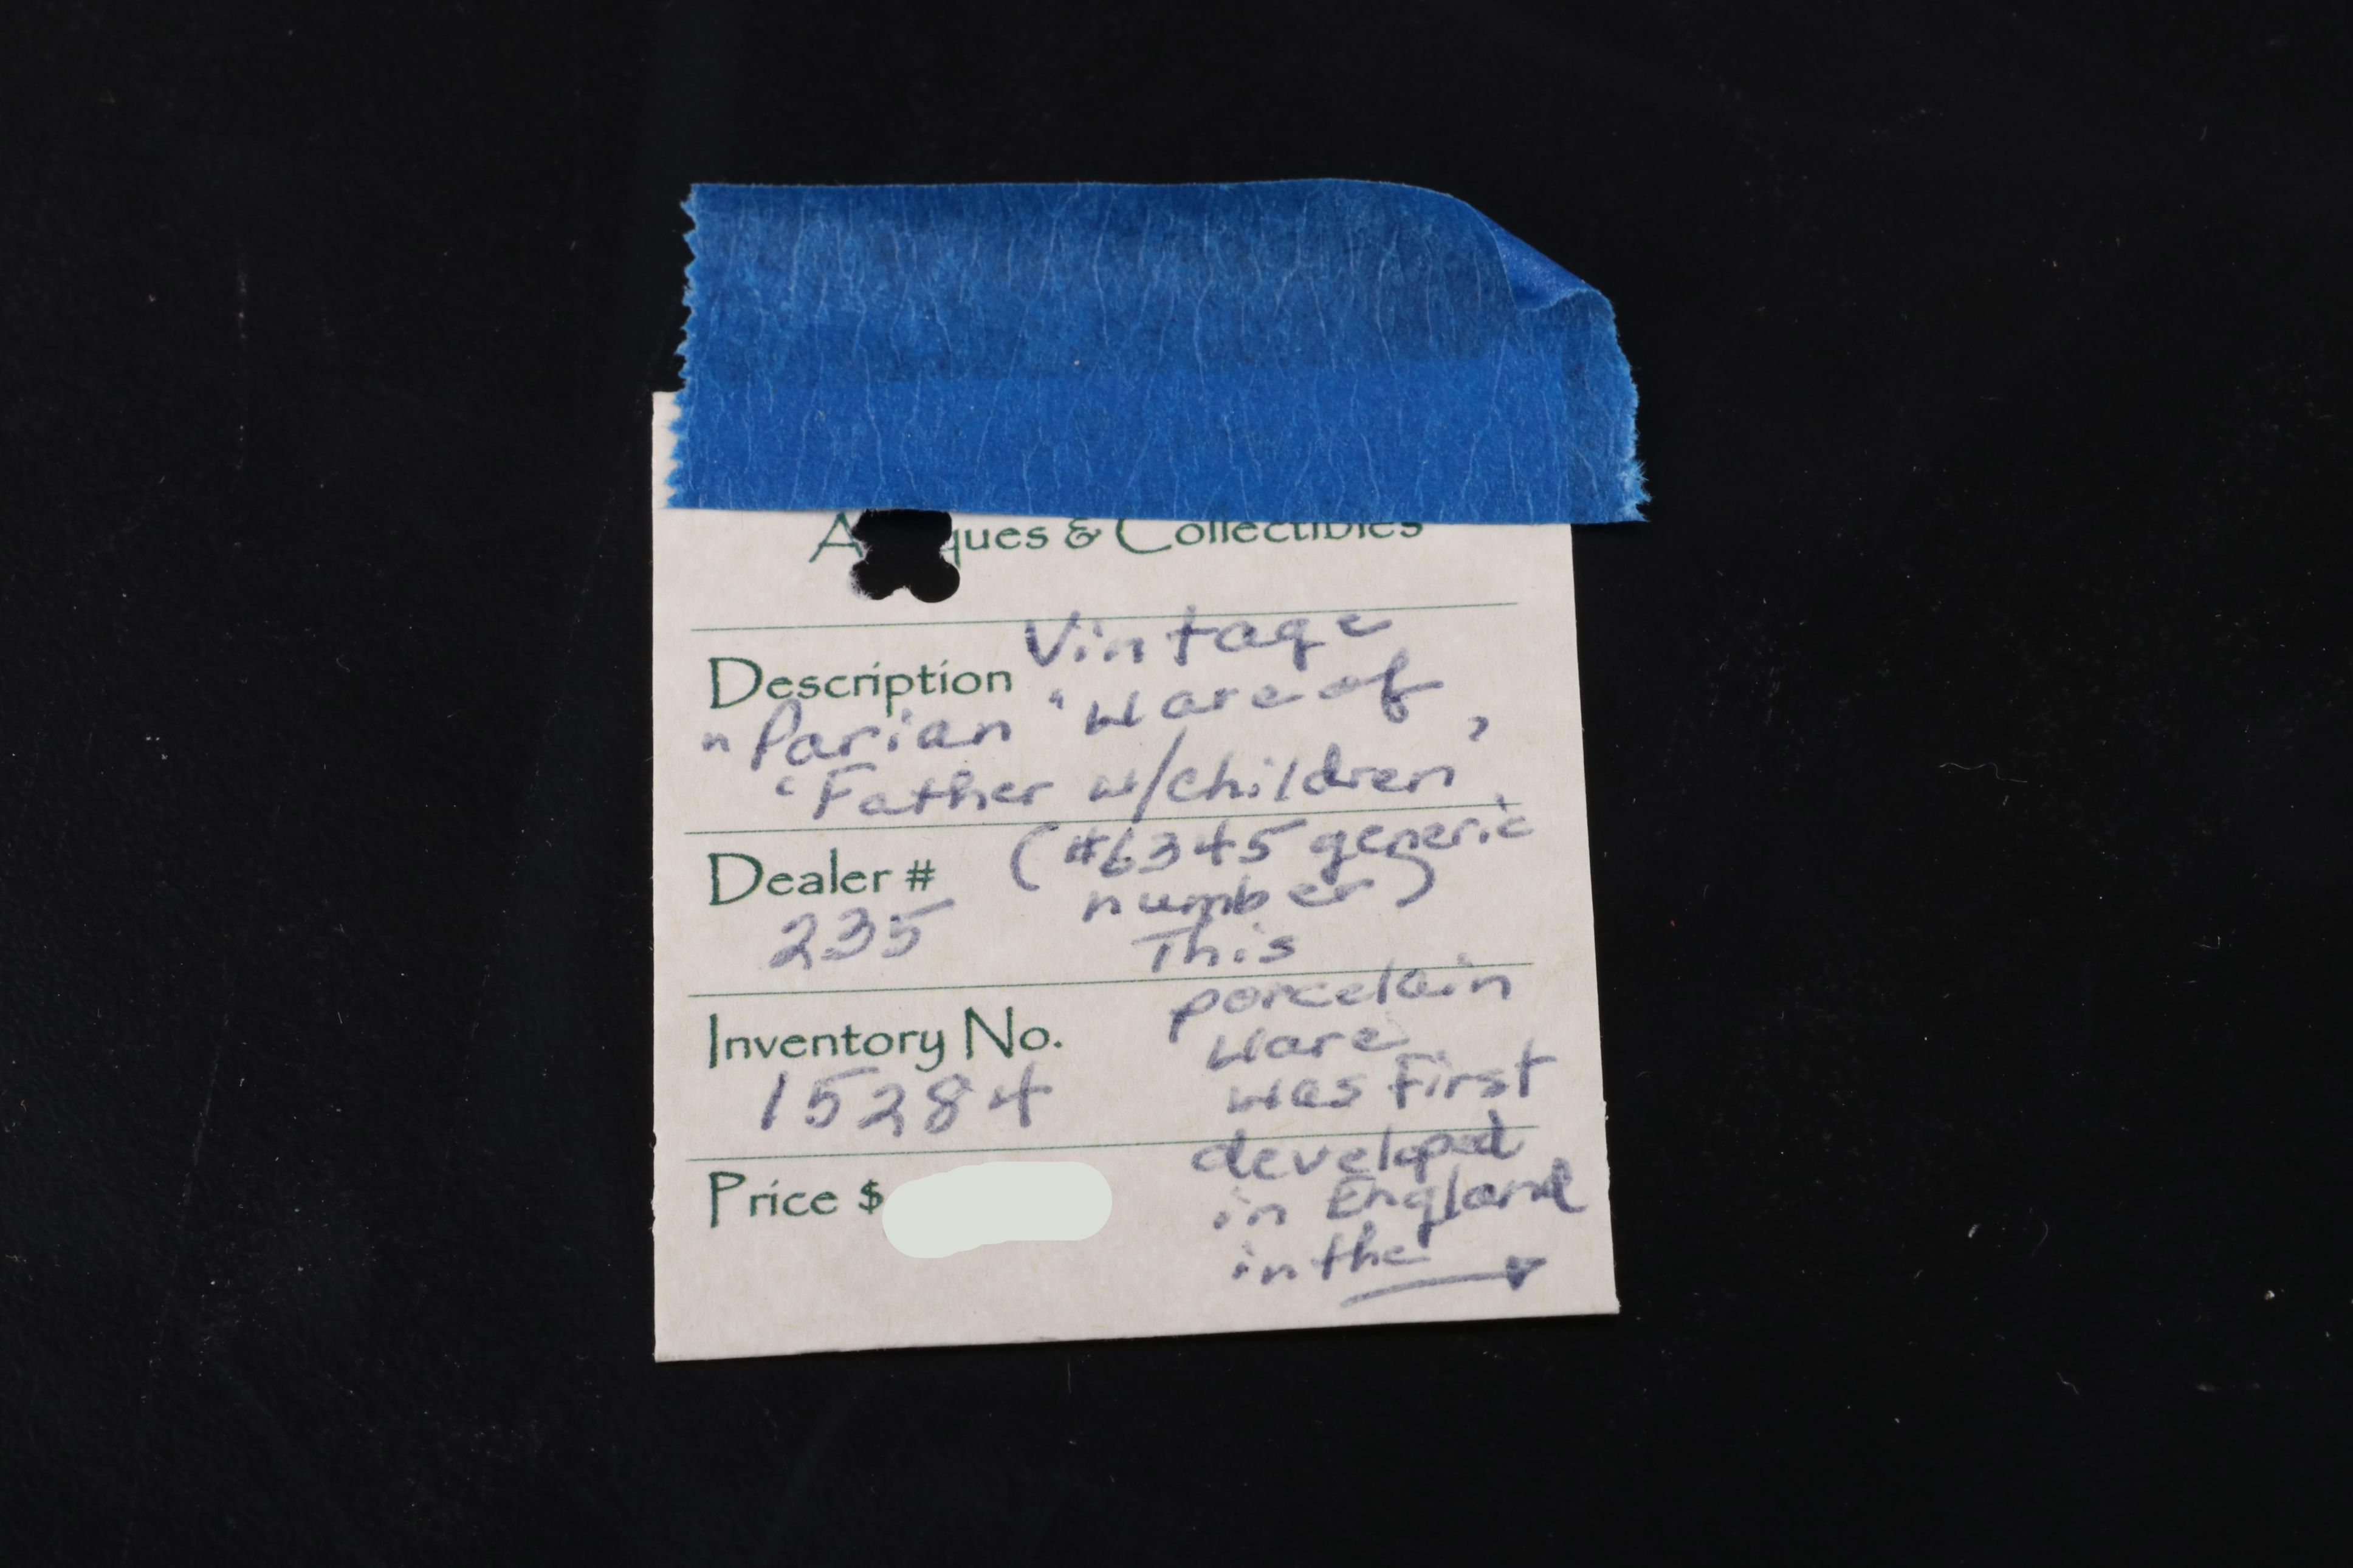 A ques & Collectibles
Description Vintage
"Parian" Ware of
'Father w/children'
Dealer # (#6345 generic
number)
235
This
porcelain
Inventory No.
ware
15284
was first
developed
Price $
in England
in the →